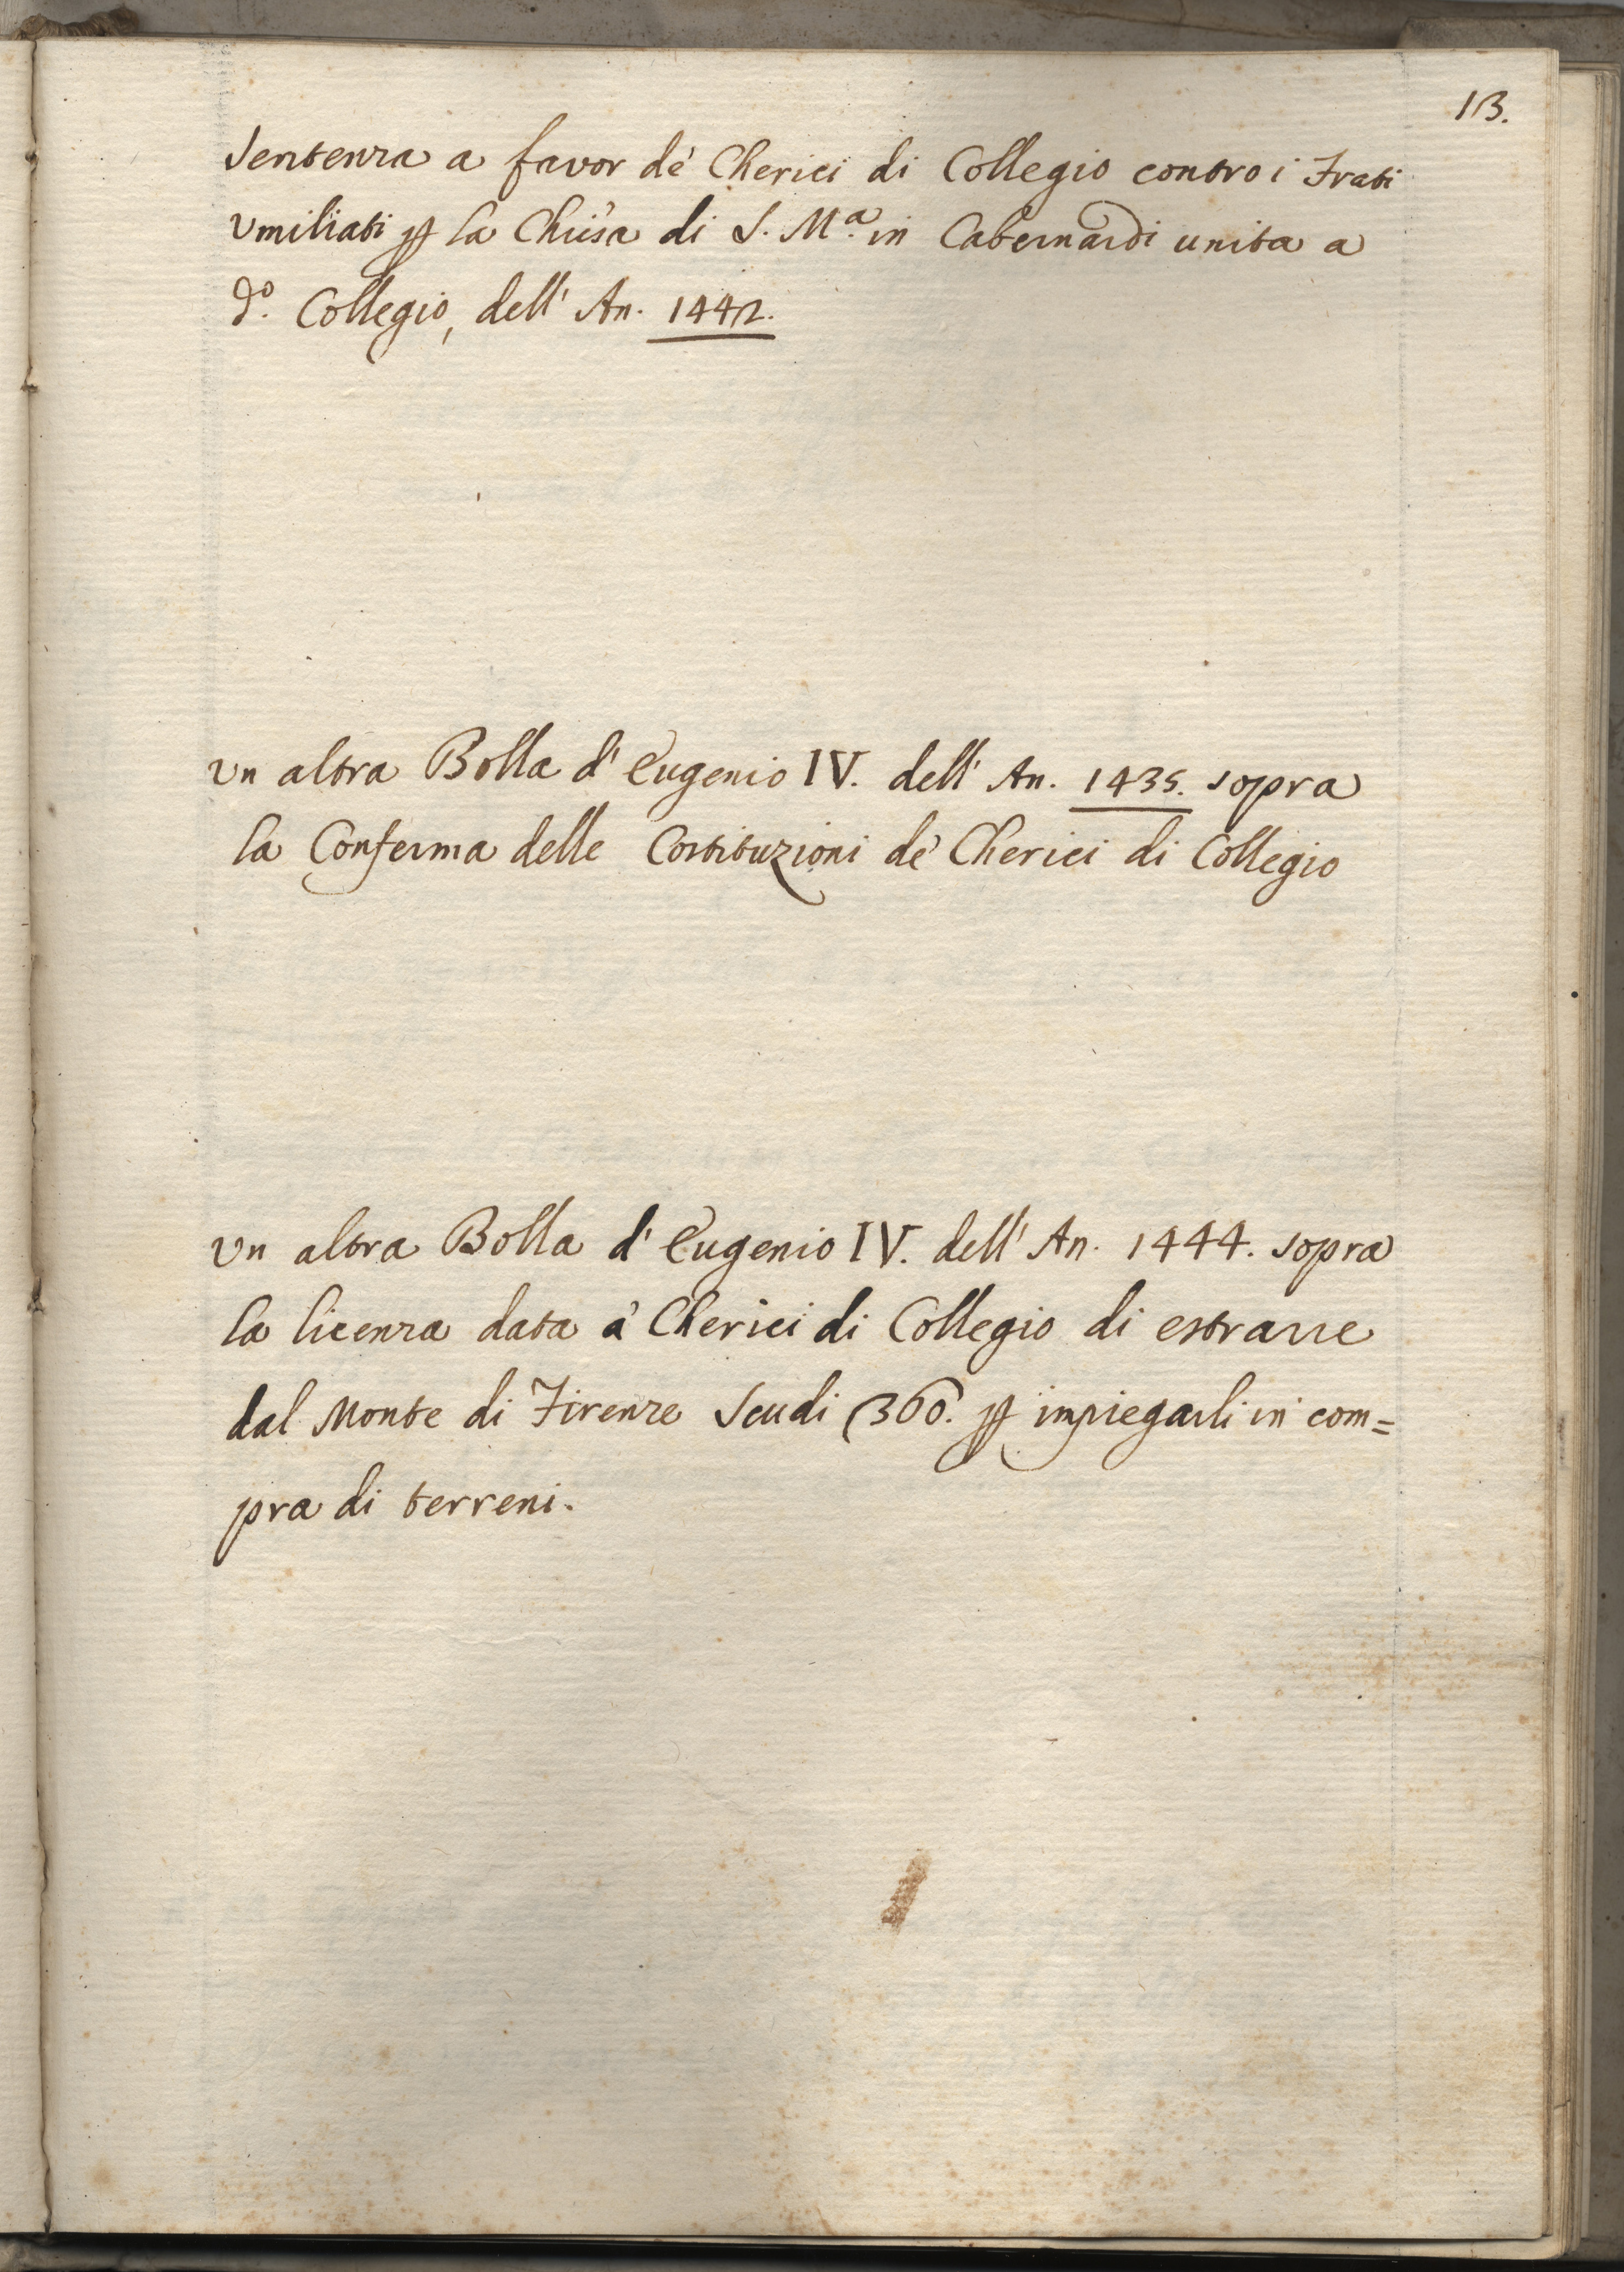 13.
Sentenza a favor de' Cherici di Collegio contro i Frati
Vmiliati p la Chiesa di S. M.ª in Cabernardi unita a
d.º Collegio, dell' An. 1442.
Vn altra Bolla d' Eugenio IV. dell' An. 1435. sopra
la Conferma delle Costituzioni de' Cherici di Collegio
Vn altra Bolla d' Eugenio IV. dell' An. 1444. sopra
la licenza data a' Cherici di Collegio di estrarre
dal Monte di Firenze Scudi 360. p impiegarli in com=
pra di terreni.